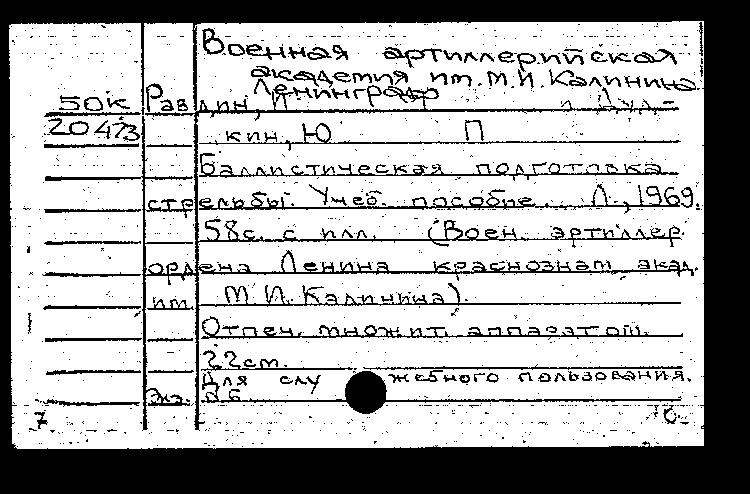 Военная артиллерийская
академия им. М.И. Калинина
Ленинград
50к Равдин, И и Дуд-
20473 кин, Ю П
Баллистическая подготовка
стрельбы. Учеб. пособие. Л., 1969.
58с. с илл. (Воен. артиллер.
ордена Ленина краснознам. акад.
им. М.И. Калинина).
Отпеч. множит. аппаратом.
22см.
Для служебного пользования.
Экз. 26
7